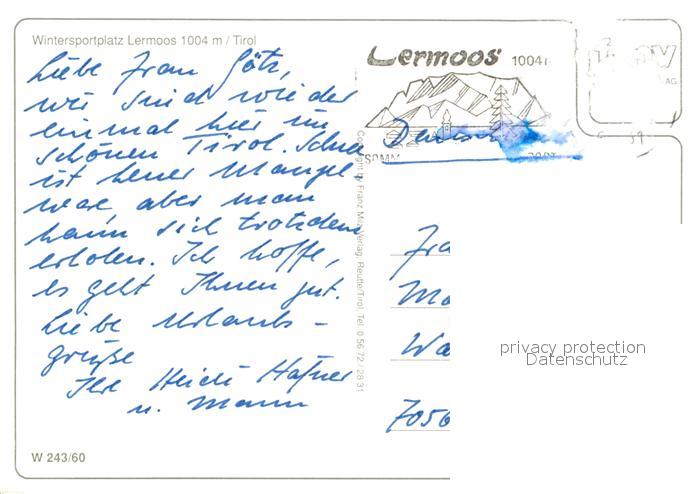 Wintersportplatz Lermoos 1004 m / Tirol
Liebe Frau Götz,
wir sind wieder
einmal hier im
schönen Tirol. Schnee
ist heuer Mangel-
ware aber man
kann sich trotzdem
erholen. Ich hoffe,
es geht Ihnen gut.
Liebe Urlaubs-
grüße
Ihre Heidi Hafner
u. Mann
W 243/60
Copyright by Franz Milz Verlag, Reutte/Tirol, Tel. 0 56 72 / 28 31
Lermoos 1004
SOMM
PORT
AG
Fra
Ma
Wa
7050
privacy protection
Datenschutz